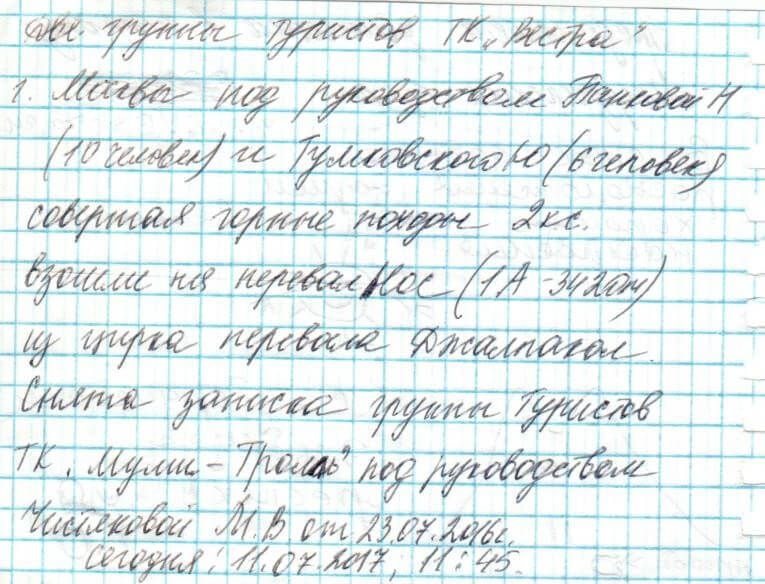 Две группы туристов ТК „Вестра"
г. Москвы под руководством Панковой Н
(10 человек) и Тумковского Ю (6 человек)
совершая горные походы 2 кс.
взошли на перевал Нос (1А - 3420м)
из цирка перевала Джалпакол.
Снята записка группы Туристов
ТК „Муми-Тролль" под руководством
Чистяковой М.В от 23.07.2016г.
Сегодня: 11.07.2017, 11:45.